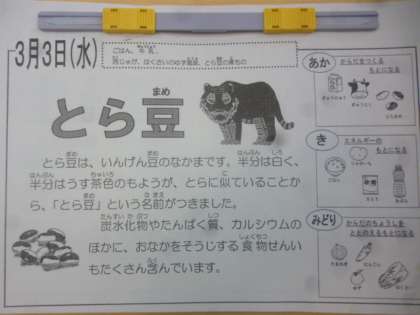 3月3日(水)
ごはん、牛乳、
とら豆
まめ
とら豆は、いんげん豆のなかまです。半分は白く、
半分はうす茶色のもようが、とらに似ていることか
ら、「とら豆」という名前がつきました。
炭水化物やたんぱく質、カルシウムの
ほかに、おなかをそうじする食物せんい
もたくさん含んでいます。
あか
からだをつくる
もとになる
き
エネルギーの
もとになる
みどり
からだのちょうしを
ととのえるもとになる